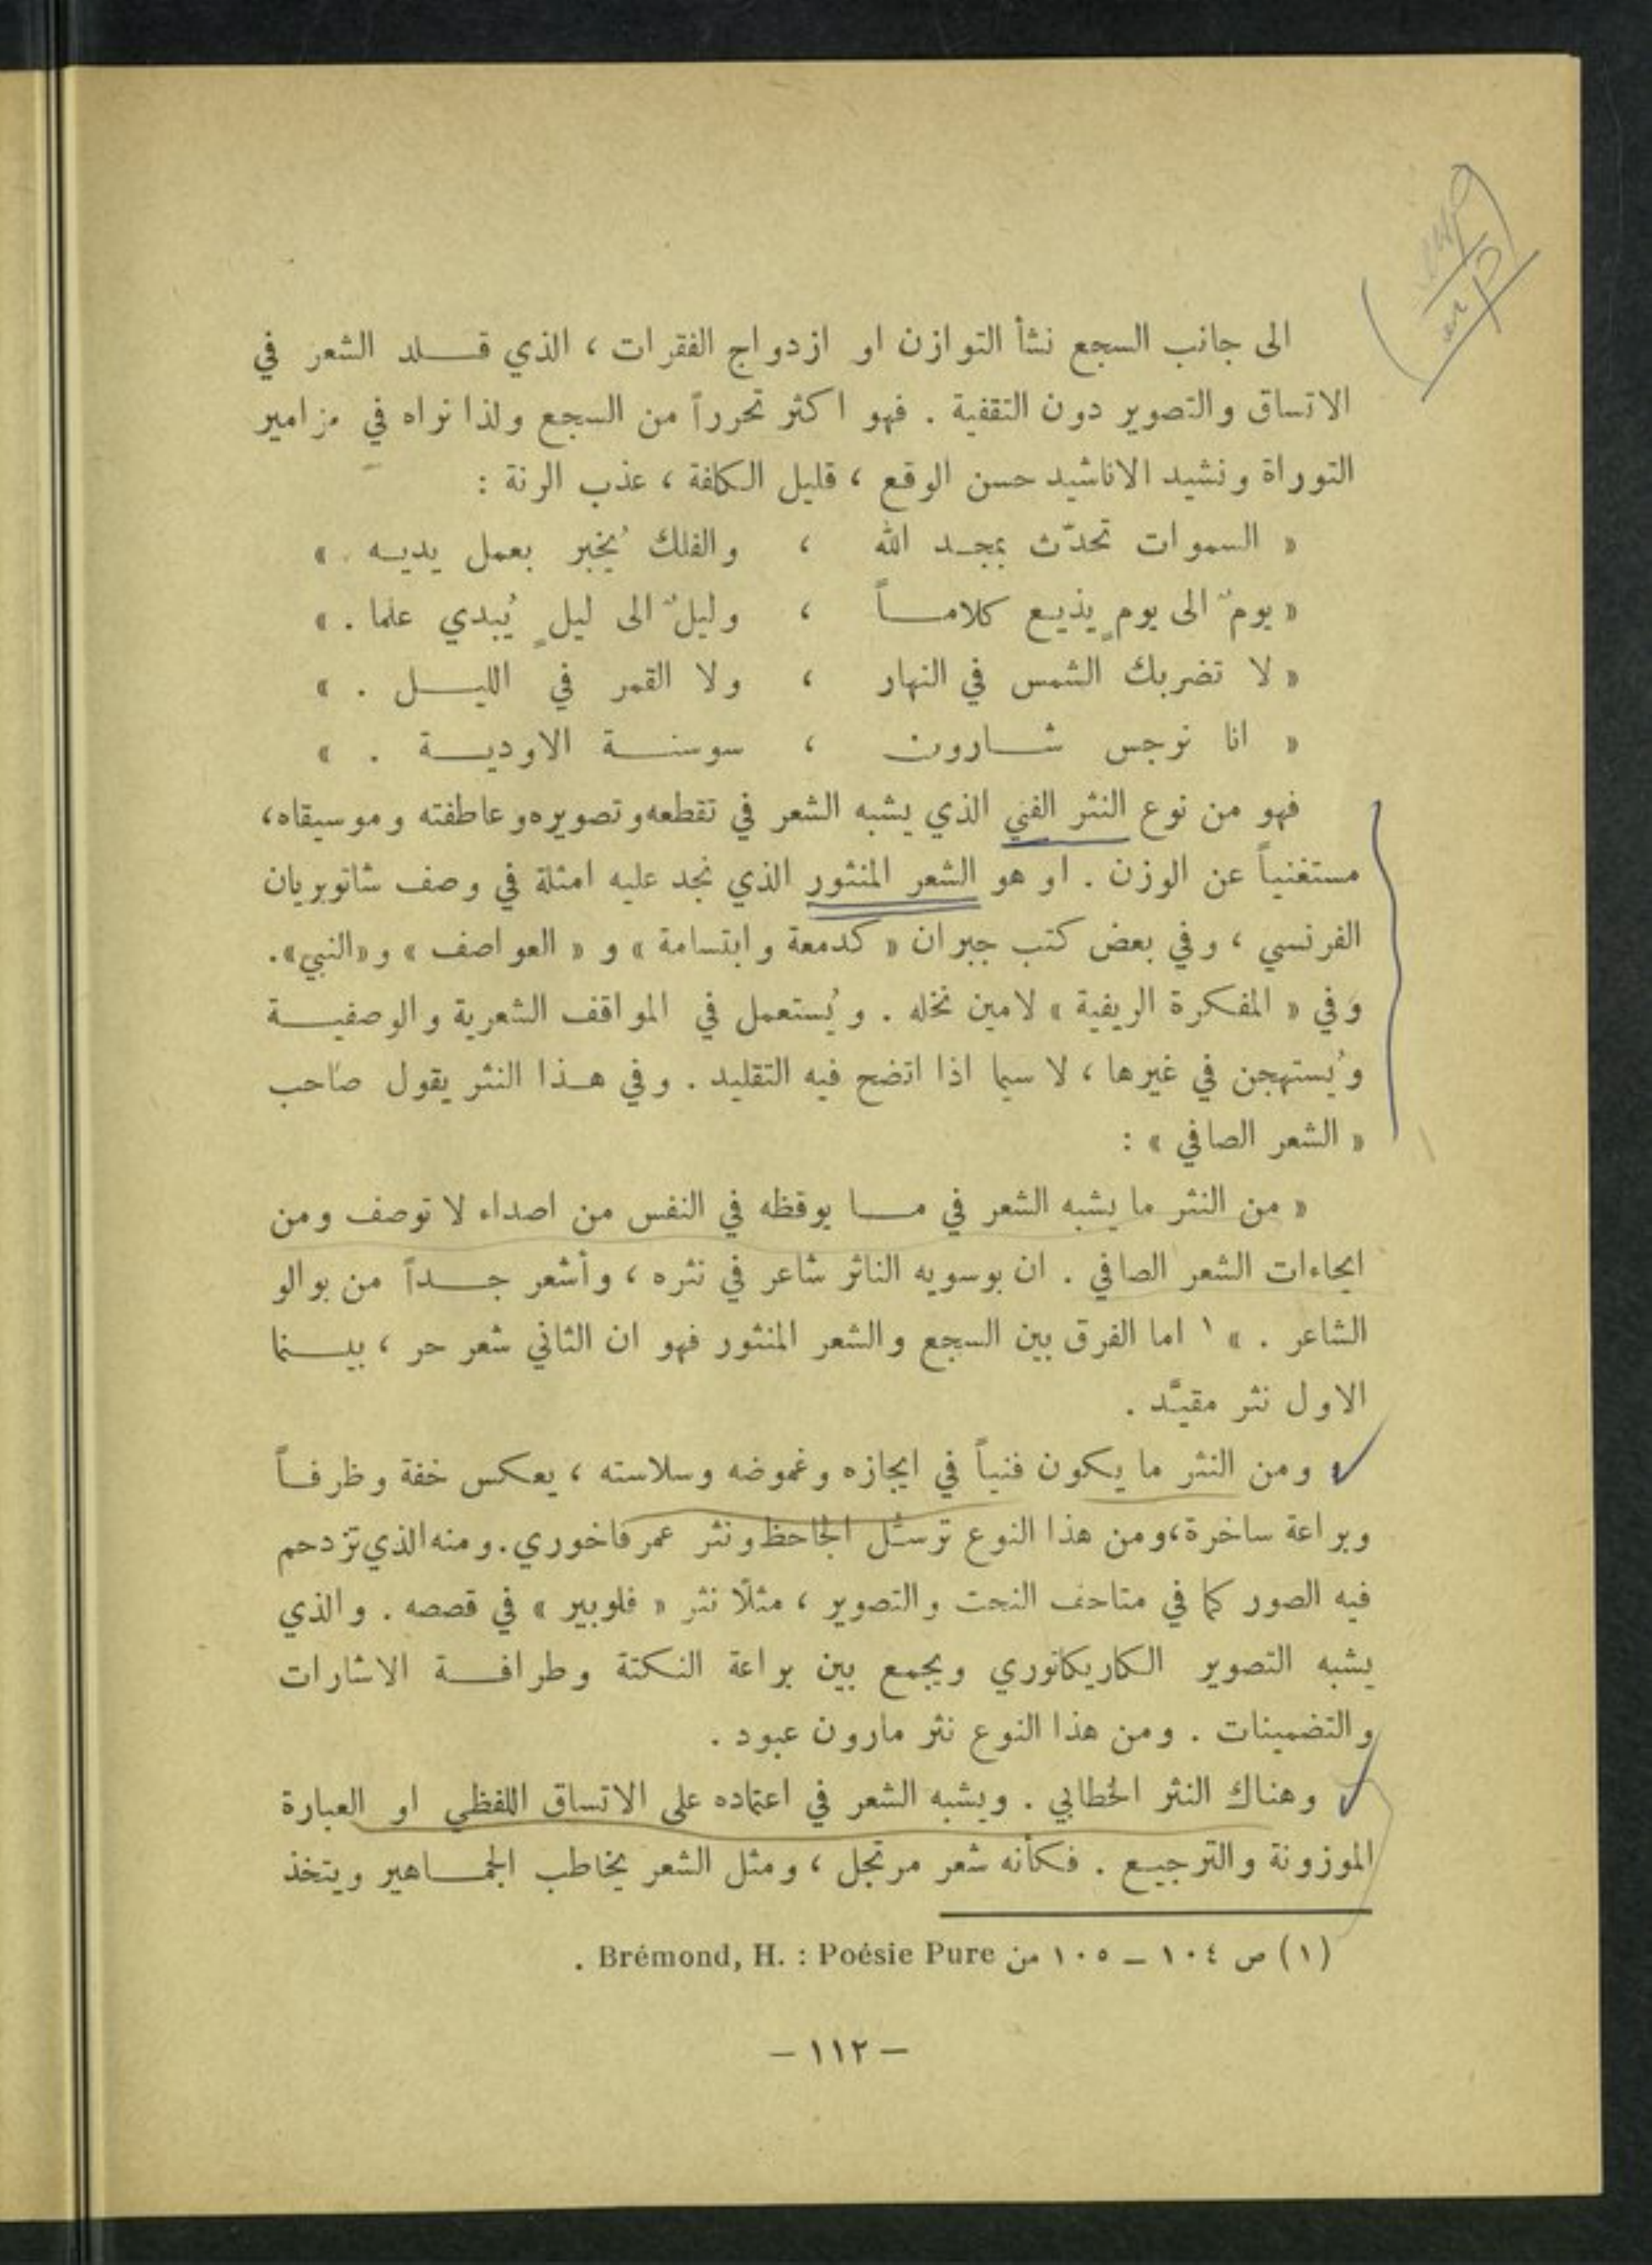 الى جانب السجع نشأ التوازن او ازدواج الفقرات ، الذي قلد الشعر في
الاتساق والتصوير دون التقفية . فهو اكثر تحرراً من السجع ولذا نراه في مزامير
التوراة ونشيد الاناشيد حسن الوقع ، قليل الكلفة ، عذب الرنة :
« السموات تحدّث بمجد الله ، والفلك يُخبر بعمل يديه . »
« يومٌ الى يومٍ يذيع كلاماً ، وليلٌ الى ليلٍ يُبدي علما . »
« لا تضربك الشمس في النهار ، ولا القمر في الليل . »
« انا نرجس شارون ، سوسنة الاودية . »
فهو من نوع النثر الفني الذي يشبه الشعر في تقطعه وتصويره وعاطفته وموسيقاه،
مستغنياً عن الوزن . او هو الشعر المنثور الذي نجد عليه امثلة في وصف شاتوبريان
الفرنسي ، وفي بعض كتب جبران « كدمعة وابتسامة » و « العواصف » و«النبي».
وفي « المفكرة الريفية » لامين نخله . ويُستعمل في المواقف الشعرية والوصفية
ويُستهجن في غيرها ، لا سيما اذا اتضح فيه التقليد . وفي هذا النثر يقول صاحب
« الشعر الصافي » :
« من النثر ما يشبه الشعر في ما يوقظه في النفس من اصداء لا توصف ومن
ايحاءات الشعر الصافي . ان بوسويه الناثر شاعر في نثره ، وأشعر جداً من بوالو
الشاعر . » ١ اما الفرق بين السجع والشعر المنثور فهو ان الثاني شعر حر ، بينما
الاول نثر مقيَّد .
ومن النثر ما يكون فنياً في ايجازه وغموضه وسلاسته ، يعكس خفة وظرفاً
وبراعة ساخرة،ومن هذا النوع ترسُّل الجاحظ ونثر عمر فاخوري. ومنه الذي تزدحم
فيه الصور كما في متاحف النحت والتصوير ، مثلًا نثر « فلوبير » في قصصه . والذي
يشبه التصوير الكاريكاتوري ويجمع بين براعة النكتة وطرافة الاشارات
والتضمينات . ومن هذا النوع نثر مارون عبود .
وهناك النثر الخطابي . ويشبه الشعر في اعتماده على الاتساق اللفظي او العبارة
الموزونة والترجيع . فكأنه شعر مرتجل ، ومثل الشعر يخاطب الجماهير ويتخذ
(١) ص ١٠٤ – ١٠٥ من Brémond, H. : Poésie Pure .
– ١١٢ –